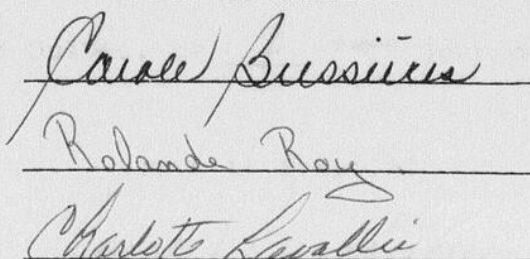 Carole Bussières
Rolande Roy
Charlotte Lavallée